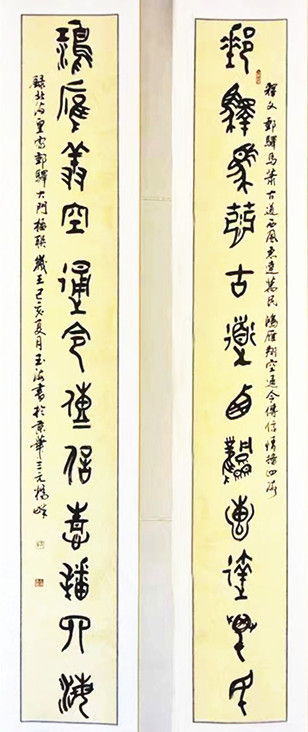 釋文 郵驛馬蕭古道西風惠達萬民 鴻雁翔空通今傳信情播四海
郵驛馬蕭古道西風惠達萬民
鴻雁翔空通今傳信喜播四海
錄北海皇宮郵驛大門楹聯 歲在己亥夏月玉海書於京華三元橋畔